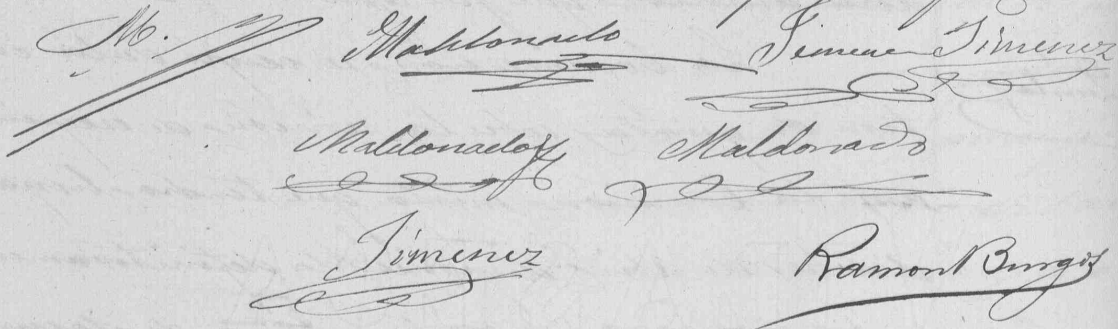 M. Maldonado Jimenez Jimenez
Maldonado Maldonado
Jimenez Ramon Burgos